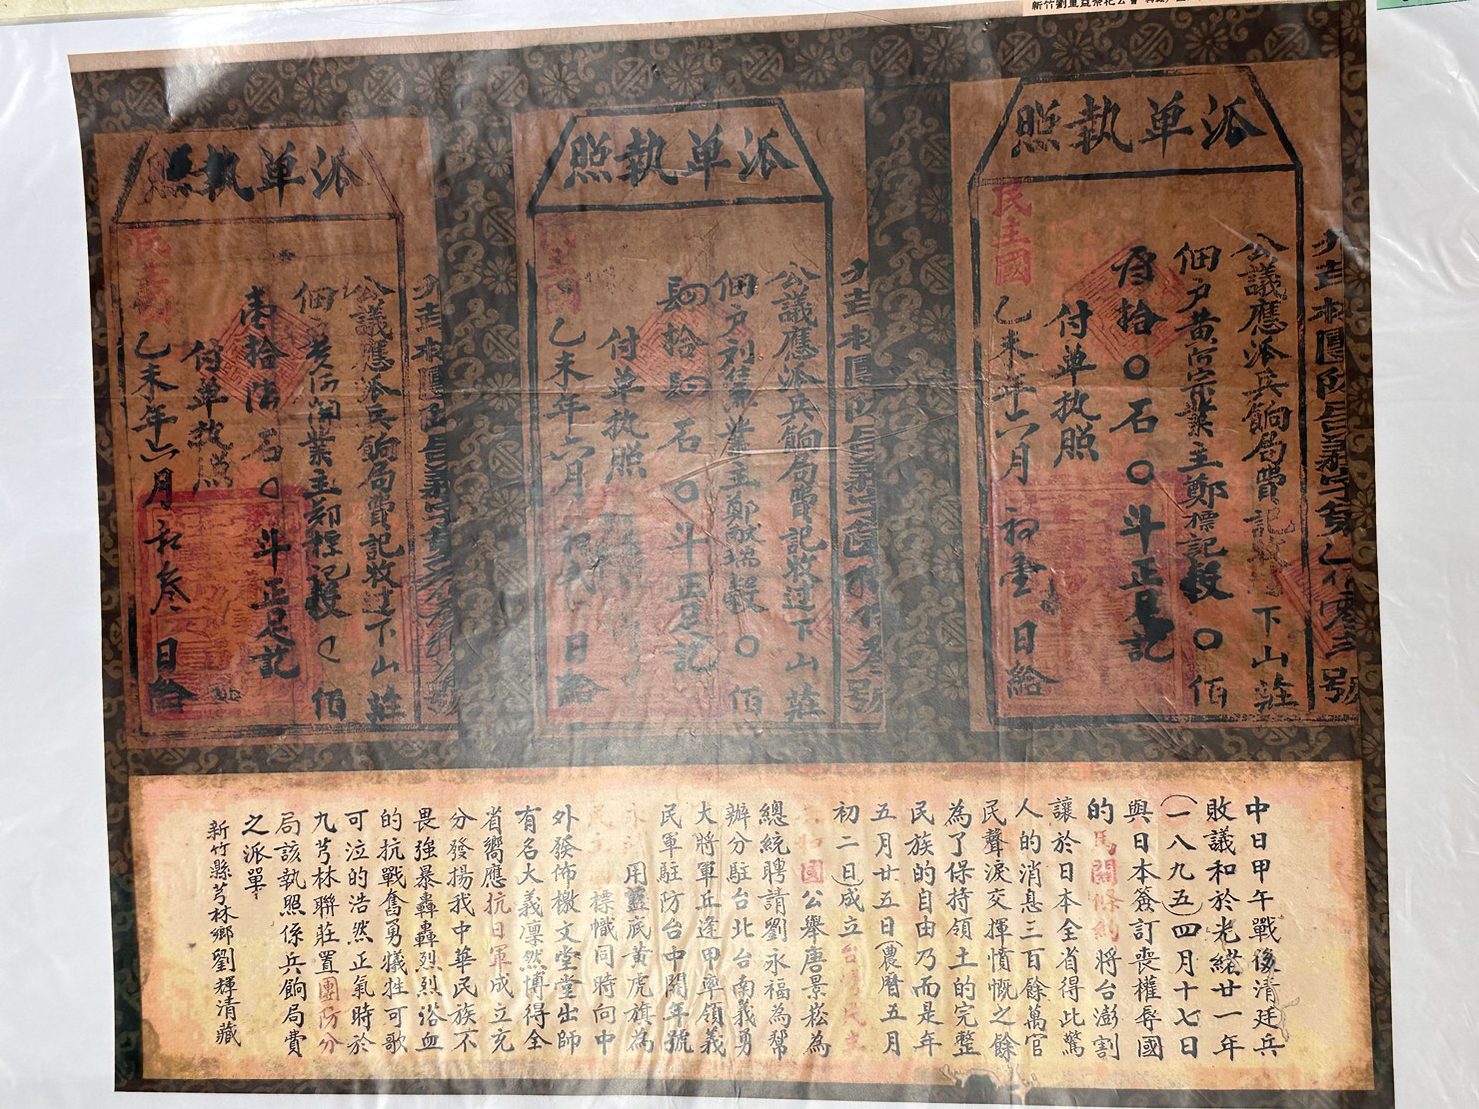 派單執照
公議應派兵餉局費記收過下山莊
佃戶黃阿宗業主鄭標記穀〇佰
叁拾〇石〇斗正足記
付單执照
民主國
乙未年六月初壹日給
派單執照
公議應派兵餉局費記收过下山莊
佃戶刘集業主鄭獻瑞穀〇佰
肆拾肆石〇斗正足記
付單执照
乙未年六月初弍日給
派單執照
公議應派兵餉局費記收过下山莊
石〇斗正足記
付單执照
乙未年六月初叁日給
中日甲午戰後清廷兵
敗議和於光緒廿一年
(一八九五)四月十七日
與日本簽訂喪權辱國
的馬關條約將台澎割
讓於日本全省得此驚
人的消息三百餘萬官
民聲淚交揮憤慨之餘
為了保持領土的完整
民族的自由乃而是年
五月廿五日(農曆五月
初二日)成立台灣民主
共和國公舉唐景崧為
總統聘請劉永福為幫
辦分駐台北台南義勇
大將軍丘逢甲率領義
民軍駐防台中開年號
永清用藍底黃虎旗為
民主國標幟同時向中
外發佈檄文堂堂出師
有名大義凜然博得全
省嚮應抗日軍成立充
分發揚我中華民族不
畏強暴轟轟烈烈浴血
的抗戰奮勇犧牲可歌
可泣的浩然正氣時於
九芎林聯莊置團防分
局該執照係兵餉局費
之派單
新竹縣芎林鄉劉輝清藏